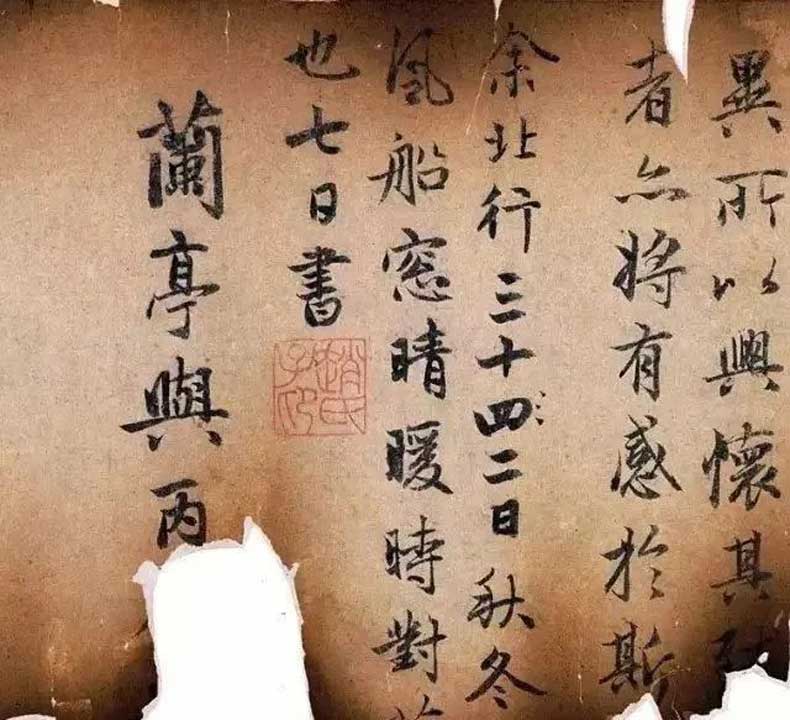 異所以興懷其致
者亦将有感於斯
余北行三十四二日秋冬
風船窓晴暖時對
也七日書
趙氏子昂
蘭亭與丙